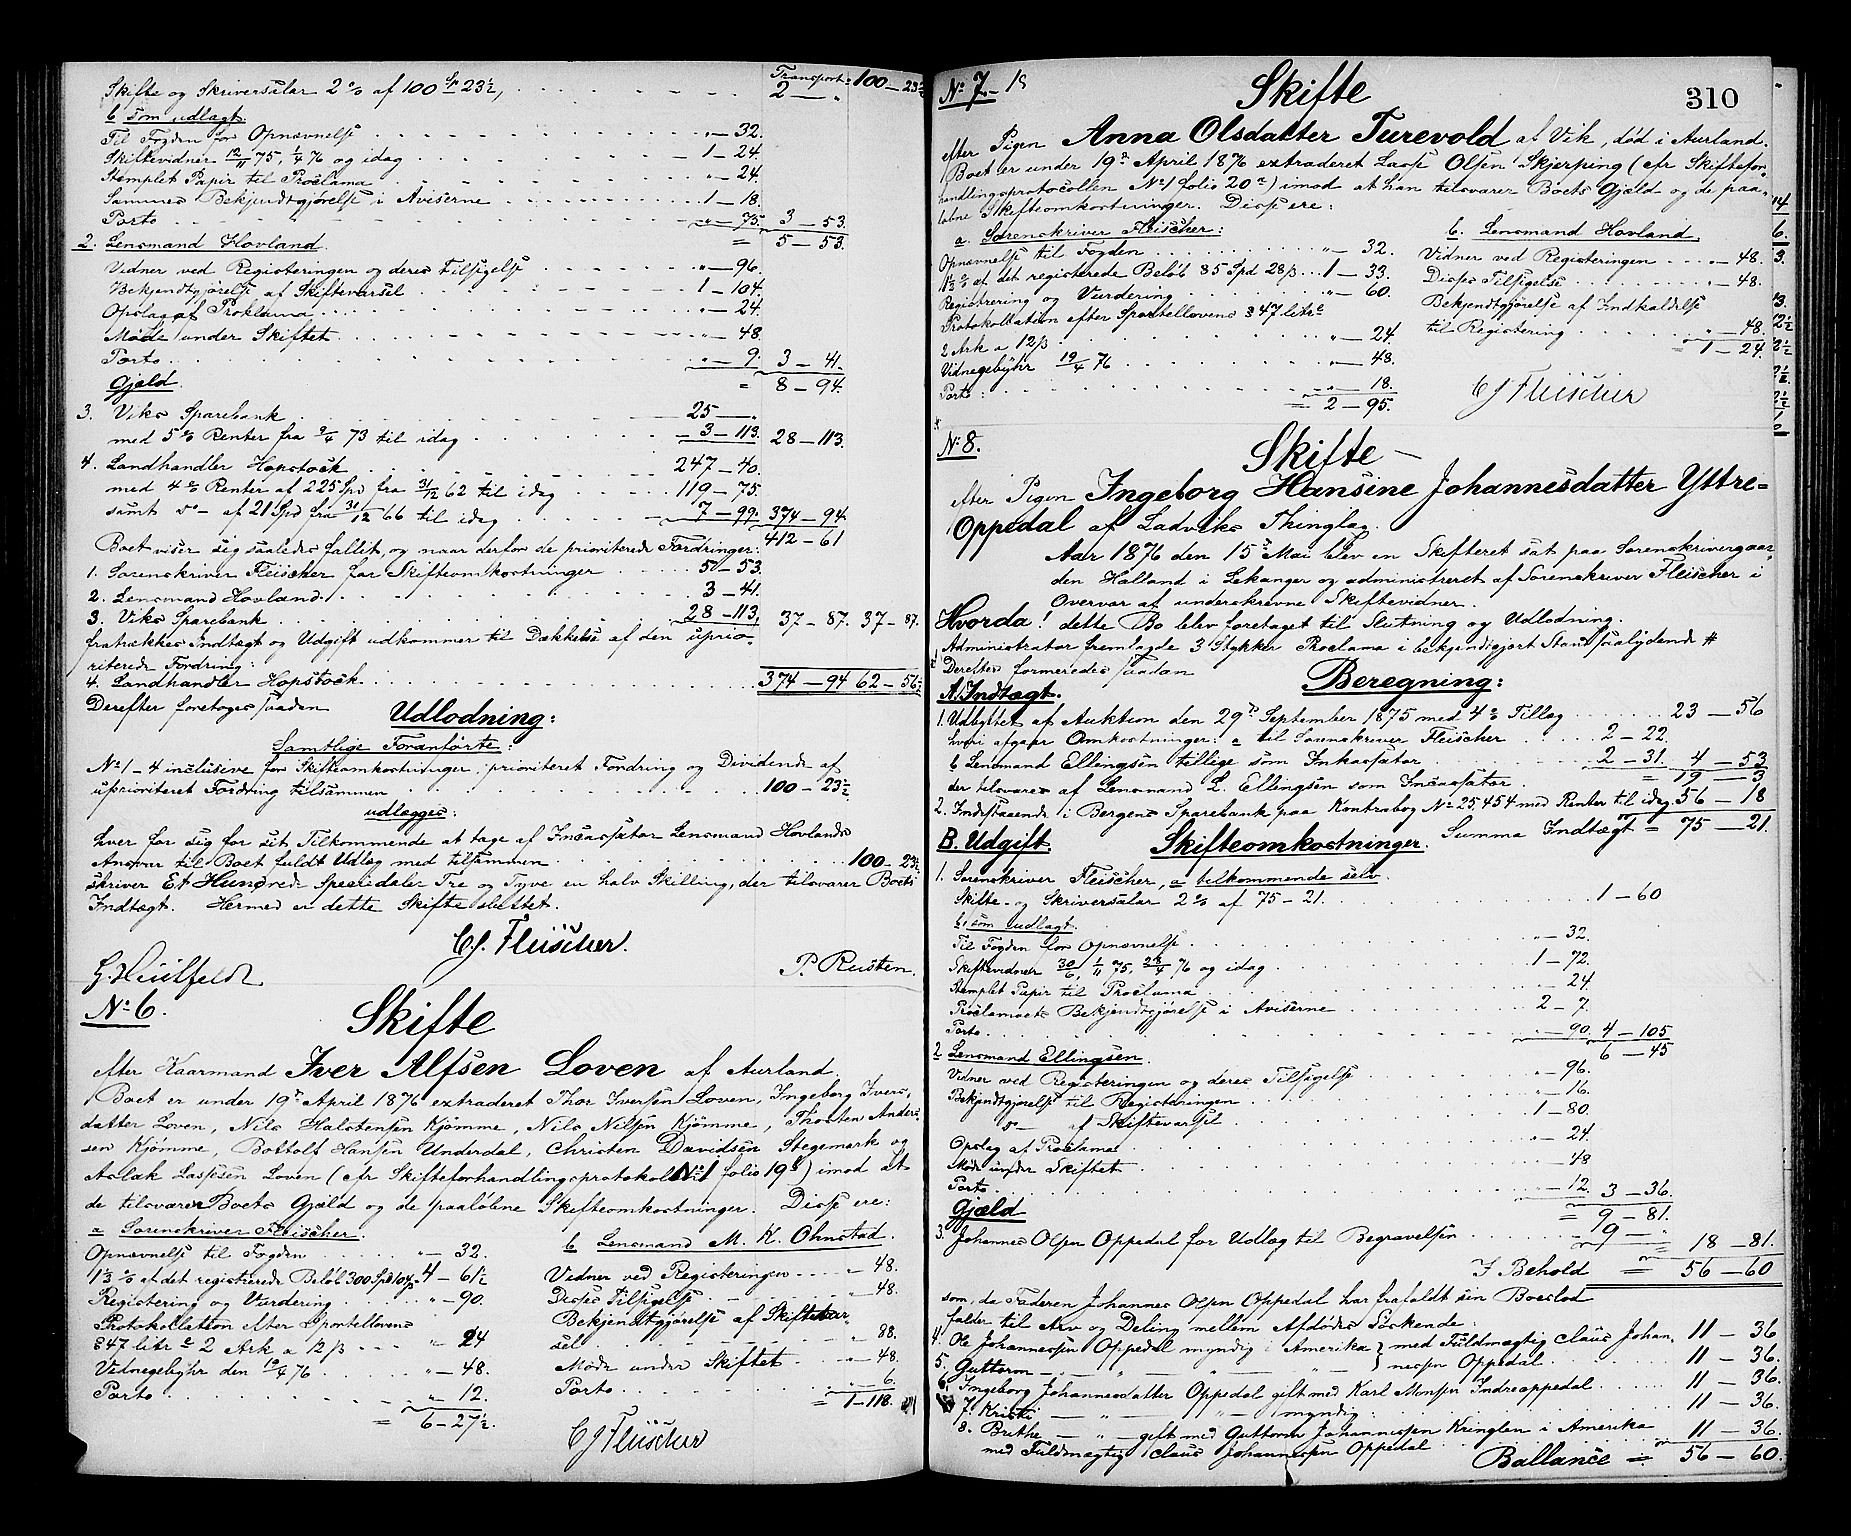 Transport: 100 – 23½
Skifte og Skriversalær 2 % af 100 Sp 23½, 2 – "
b som udlagt.
Til Fogden for Opnævnelse " – 32.
Skiftevidner 12/11 75, 1/4 76 og idag 1 – 24.
Stemplet Papir til Proclama " – 24.
Sammes Bekjendtgjørelse i Aviserne 1 – 18.
Porto " – 75. 3 – 53.
2. Lensmand Hovland. = 5 – 53.
Vidner ved Registeringen og deres Tilsigelse " – 96.
Bekjendtgjørelse af Skiftevarsel 1 – 104
Opslag af Proklama " – 24.
Møde under Skiftet " – 48.
Porto " – 9. 3 – 41.
Gjæld. = 8 – 94.
3. Viks Sparebank 25 – "
med 5 % Renter fra 9/4 73 til idag 3 – 113. 28 – 113.
4. Landhandler Hopstock 247 – 40.
med 4 % Renter af 225 Spd fra 31/12 62 til idag 119 – 75.
samt do – af 21 Spd fra 31/12 66 til idag 7 – 99. 374 – 94.
412 – 61
Boet viser sig saaledes fallit, og naar derfor de prioriterede Fordringer:
1. Sorenskriver Fleischer for Skifteomkostninger 5 – 53.
2. Lensmand Hovland. 3 – 41.
3. Viks Sparebank 28 – 113, 37 – 87. 37 – 87.
fratrækkes Indtægt og Udgift udkommer til Dækkelse af den uprio-
riterede Fordring:
4. Landhandler Hopstock 374 – 94 62 – 56½
Derefter foretoges saadan
Udlodning:
Samtlige Foranførte:
No 1 – 4 inclusive for Skifteomkostninger, prioriteret Fordring og Dividende af
uprioriteret Fordring tilsammen 100 – 23½
udlægges:
hver for sig for sit Tilkommende at tage af Incassator Lensmand Hovlands
Ansvar til Boet fuldt Udlæg med tilsammen 100 – 23½
skriver Et Hundrede Speciedaler Tre og Tyve en halv Skilling, der tilsvarer Boets
Indtægt. Hermed er dette Skifte sluttet.
C J Fleischer.
G. Huitfeldt P. Rusten.
No 6. Skifte
efter Kaarmand Iver Alfsen Loven af Aurland.
Boet er under 19de April 1876 extraderet Thor Iversen Loven, Ingeborg Ivers-
datter Loven, Nils Halstensen Kjømme, Nils Nilsen Kjømme, Thorsten Anders-
sen Kjømme, Bottolf Hansen Underdal, Christen Davidsen Stegemark og
Aslak Lassesen Loven (cfr Skifteforhandlingsprotokol No 1 folio 19b) imod at
de tilsvarer Boets Gjæld og de paaløbne Skifteomkostninger. Disse ere:
a Sorenskriver Fleischer.
Opnævnelse til Fogden " – 32.
1⅓ % af det registrerede Beløb 300 Spd 104 β 4 – 61½
Registering og Vurdering " – 90.
Protokollation efter Sportellovens
§ 47 litr a 2 Ark a 12 β " 24
Vidnegebyhr den 19/4 76 " – 48.
Porto " – 12.
= 6 – 27½.
b Lensmand M. K. Ohnstad.
Vidner ved Registeringen " – 48.
Disses Tilsigelse " 48.
Bekjendtgjørelse af Skiftevar
sel " 88.
Møde under Skiftet " – 48.
Porto " 6.
= 1 – 118.
C J Fleischer
310
No 7. Skifte
efter Pigen Anna Olsdatter Turevold af Vik, død i Aurland.
Boet er under 19de April 1876 extraderet Lasse Olsen Skjerping (cfr Skiftefor-
handlingsprotocollen No 1 folio 20a) imod at han tilsvarer Boets Gjæld og de paa-
løbne Skifteomkostninger. Disse ere:
a. Sorenskriver Fleischer:
Opnævnelse til Fogden " – 32.
1⅓ % af det registerede Beløb 85 Spd 28 β 1 – 33.
Registrering og Vurdering " – 60.
Protokollation efter Sportellovens § 47 litr a
2 Ark a 12 β " – 24.
Vidnegebyhr 19/4 76 " – 48.
Porto: " – 18.
= 2 – 95.
b. Lensmand Hovland.
Vidner ved Registeringen " – 48.
Disses Tilsigelse " – 48.
Bekjendtgjørelse af Indkaldelse
til Registering " – 48.
= 1 – 24.
C J Fleischer
No 8. Skifte –
efter Pigen Ingeborg Hansine Johannesdatter Yttre=
Oppedal af Ladviks Thinglag.
Aar 1876 den 15de Mai blev en Skifteret sat paa Sorenskrivergaar-
den Halland i Lekanger og administreret af Sorenskriver Fleischer i
Overvær af underskrevne Skiftevidner.
Hvorda! dette Bo blev foretaget til Slutning og Udlodning.
Administrator fremlagde 3 Stykker Proclama i bekjendtgjort Stand saalydende #
Derefter formeredes saadan
A. Indtægt. Beregning:
1. Udbyttet af Auktion den 29de September 1875 med 4 % Tillæg 23 – 56
hvori afgaar Omkostninger: a til Sorenskriver Fleischer 2 – 22
b Lensmand Ellingsen tillige som Inkassator 2 – 31. 4 – 53
der tilsvares af Lensmand L. Ellingsen som Incassator. = 19 – 3
2. Indestaaende i Bergens Sparebank paa Kontrabog No 25,454 med Renter til idag 56 – 18
Summa Indtægt = 75 – 21.
B. Udgift. Skifteomkostninger.
1. Sorenskriver Fleischer, a tilkommende selv.
Skifte- og Skriversalær 2 % af 75 – 21. 1 – 60
b, som udlagt.
Til Fogden for Opnævnelse " – 32.
Skiftevidner 30/6, 1/11 75, 28/4 76 og idag 1 – 72.
Stemplet Papir til Proclama " 24
Proclamaets Bekjendtgjørelse i Aviserne 2 – 7.
Porto " – 90. 4 – 105
6 – 45
2 Lensmand Ellingsen.
Vidner ved Registeringen og deres Tilsigelse " – 96.
Bekjendtgjørelse til Registeringen " – 16.
do – af Skiftevarsel 1 – 80.
Opslag af Proclama " – 24.
Møde under Skiftet " – 48
Porto " – 12. 3 – 36.
Gjæld = 9 – 81.
3. Johannes Olsen Oppedal for Udlæg til Begravelsen 9 – "
= 18 – 81.
I Behold = 56 – 60
som, da Faderen Johannes Olsen Oppedal har frafaldt sin Boeslod
falder til Arv og Deling mellem Afdødes Søskende:
4. Ole Johannessen Oppedal myndig i Amerika } med Fuldmægtig Claus Johan, 11 – 36
5. Guttorm – " – " } nessen Oppedal 11 – 36.
6. Ingeborg Johannesdatter Oppedal gift med Karl Monsen Indreoppedal 11 – 36.
7. Kristi – " – " – myndig 11 – 36.
8. Brithe – " – gift med Guttorm Johannessen Kringlen i Amerika
med Fuldmægtig Claus Johannessen Oppedal 11 – 36.
Ballance = 56 – 60.